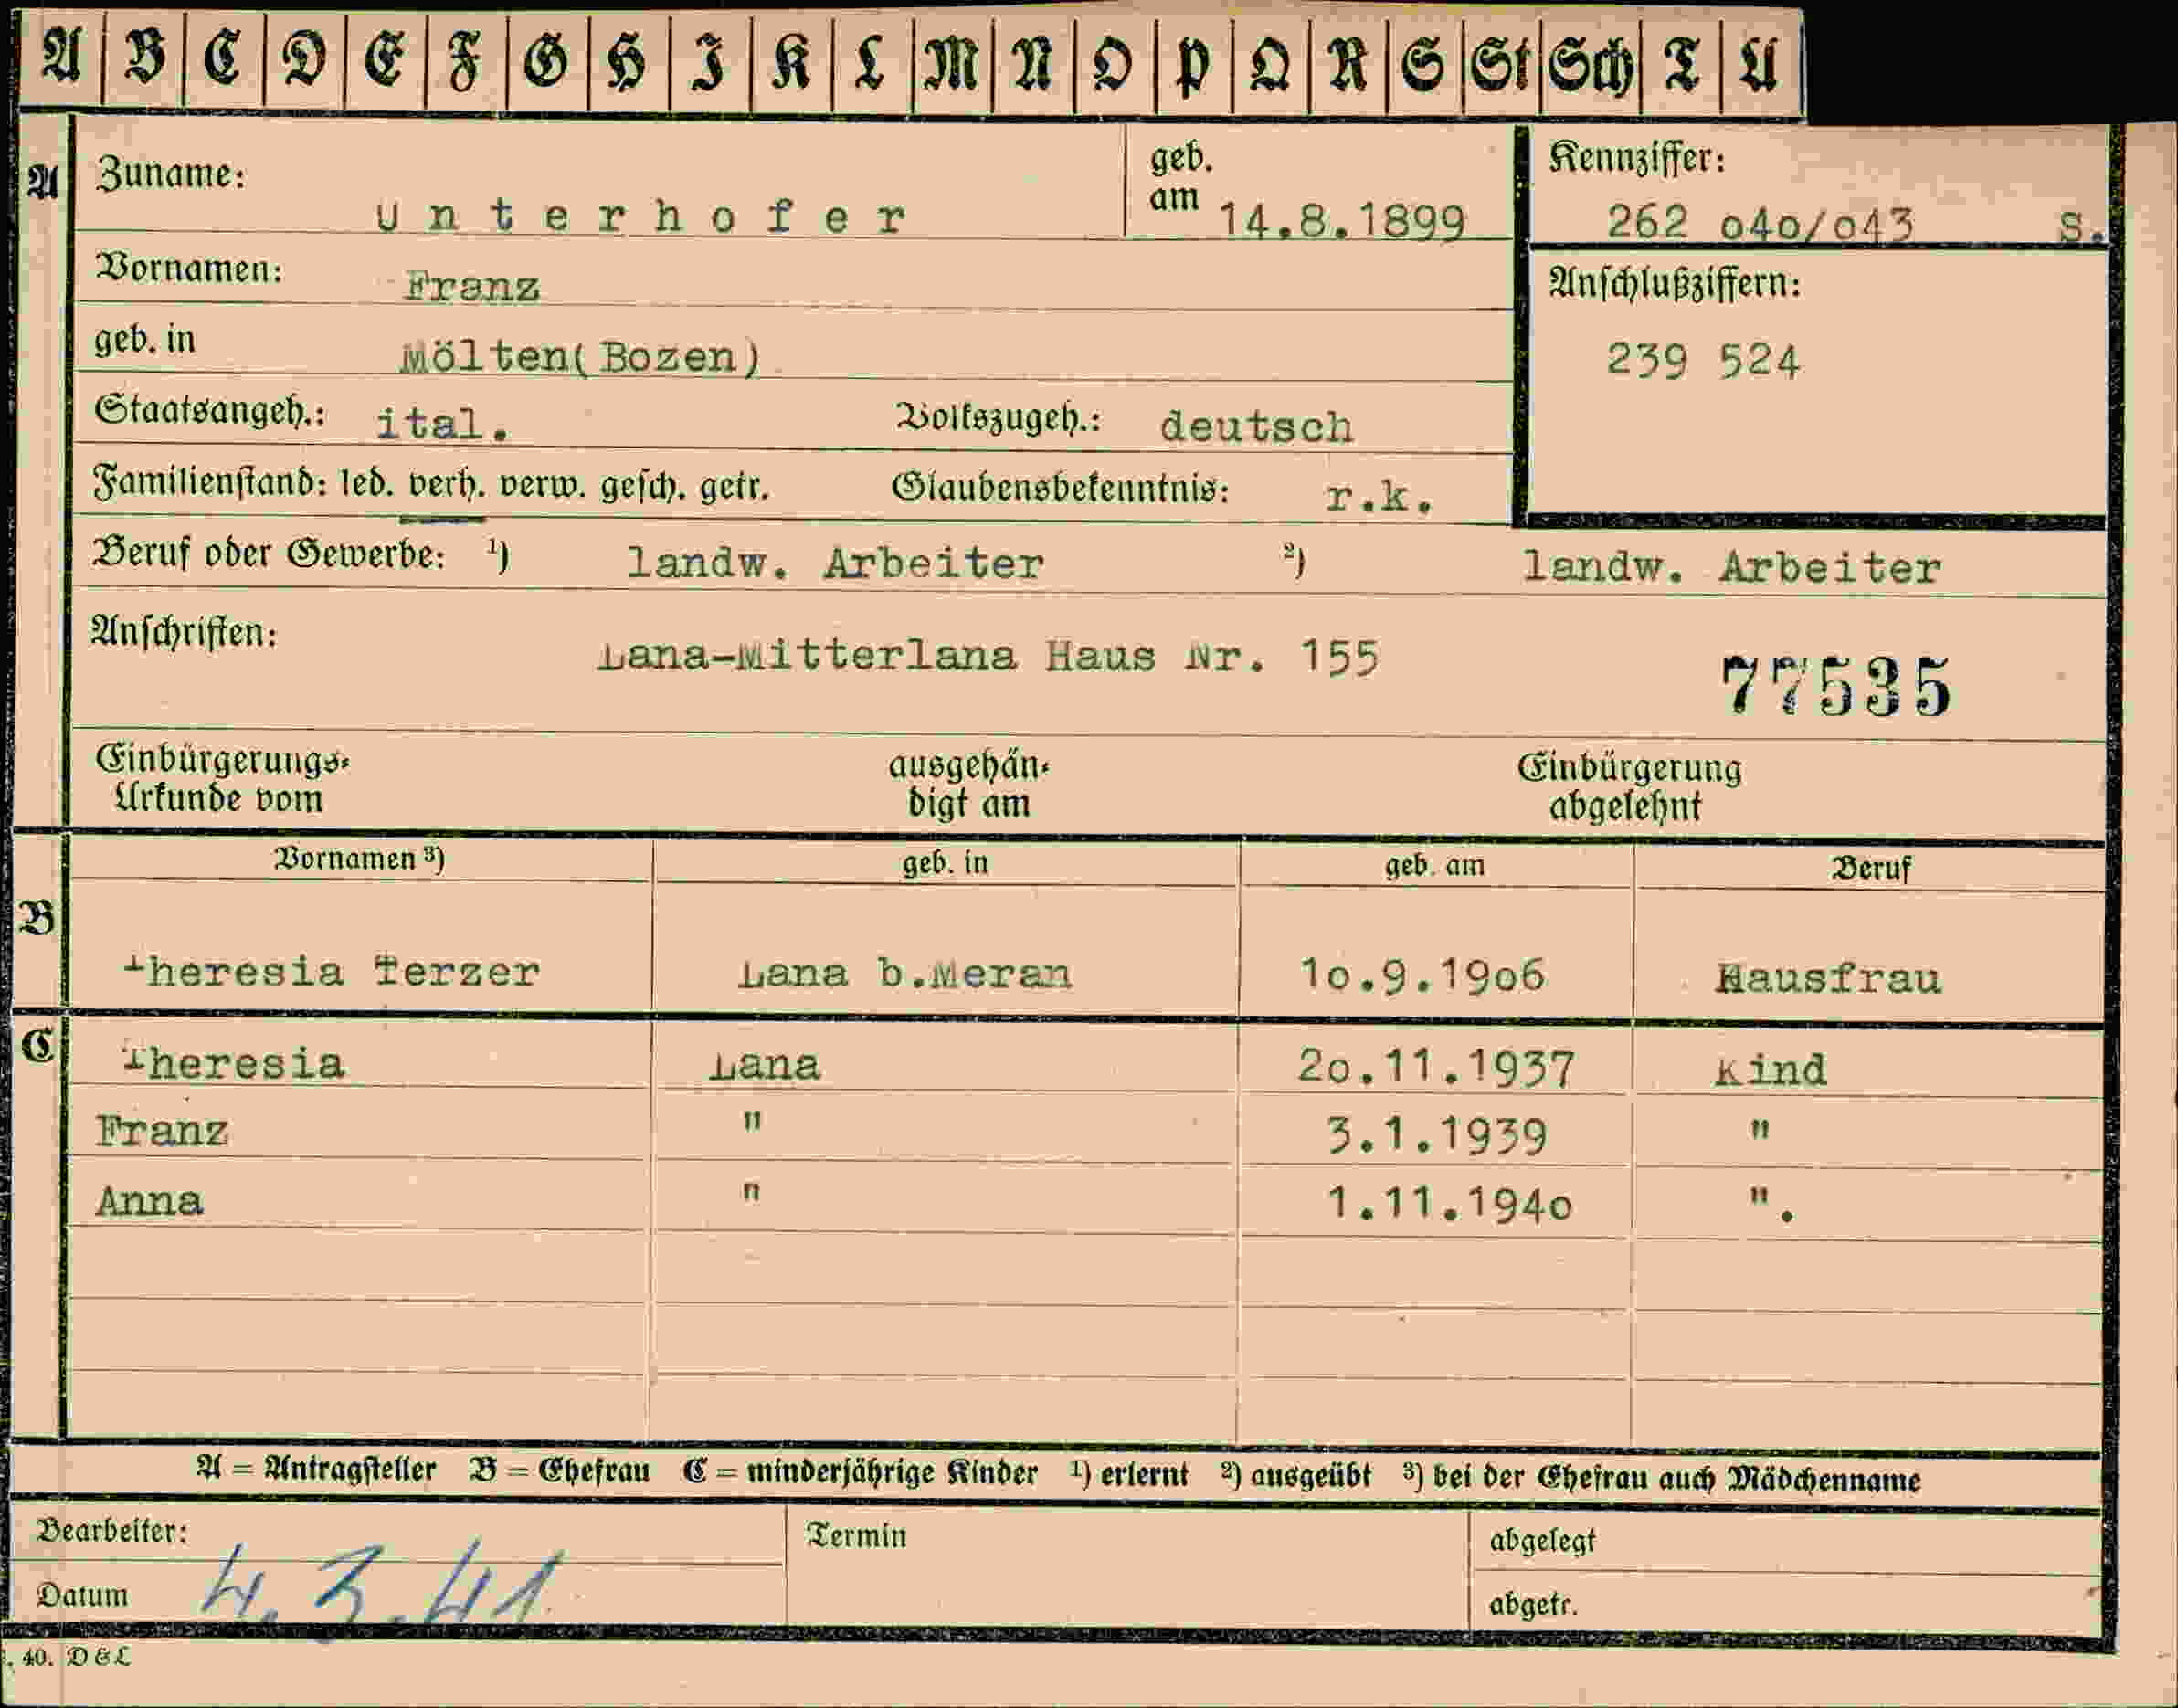 A B C D E F G H I K L M N O P Q R S St Sch T U
A Zuname: Unterhofer geb. am 14.8.1899 Kennziffer: 262 o4o/o43 S.
Vornamen: Franz Anschlußziffern:
geb. in Mölten(Bozen) 239 524
Staatsangeh.: ital. Volkszugeh.: deutsch
Familienstand: led. verh. verw. gesch. getr. Glaubensbekenntnis: r.k.
Beruf oder Gewerbe: 1) landw. Arbeiter 2) landw. Arbeiter
Anschriften: Lana-Mitterlana Haus Nr. 155 77535
Einbürgerungs- ausgehän- Einbürgerung
Urkunde vom digt am abgelehnt
Vornamen 3) geb. in geb. am Beruf
B
Theresia Terzer Lana b.Meran 1o.9.19o6 Hausfrau
C Theresia Lana 2o.11.1937 Kind
Franz " 3.1.1939 "
Anna " 1.11.194o ".
A = Antragsteller B = Ehefrau C = minderjährige Kinder 1) erlernt 2) ausgeübt 3) bei der Ehefrau auch Mädchenname
Bearbeiter: Termin abgelegt
Datum 4.3.41 abgetr.
. 40. D & L